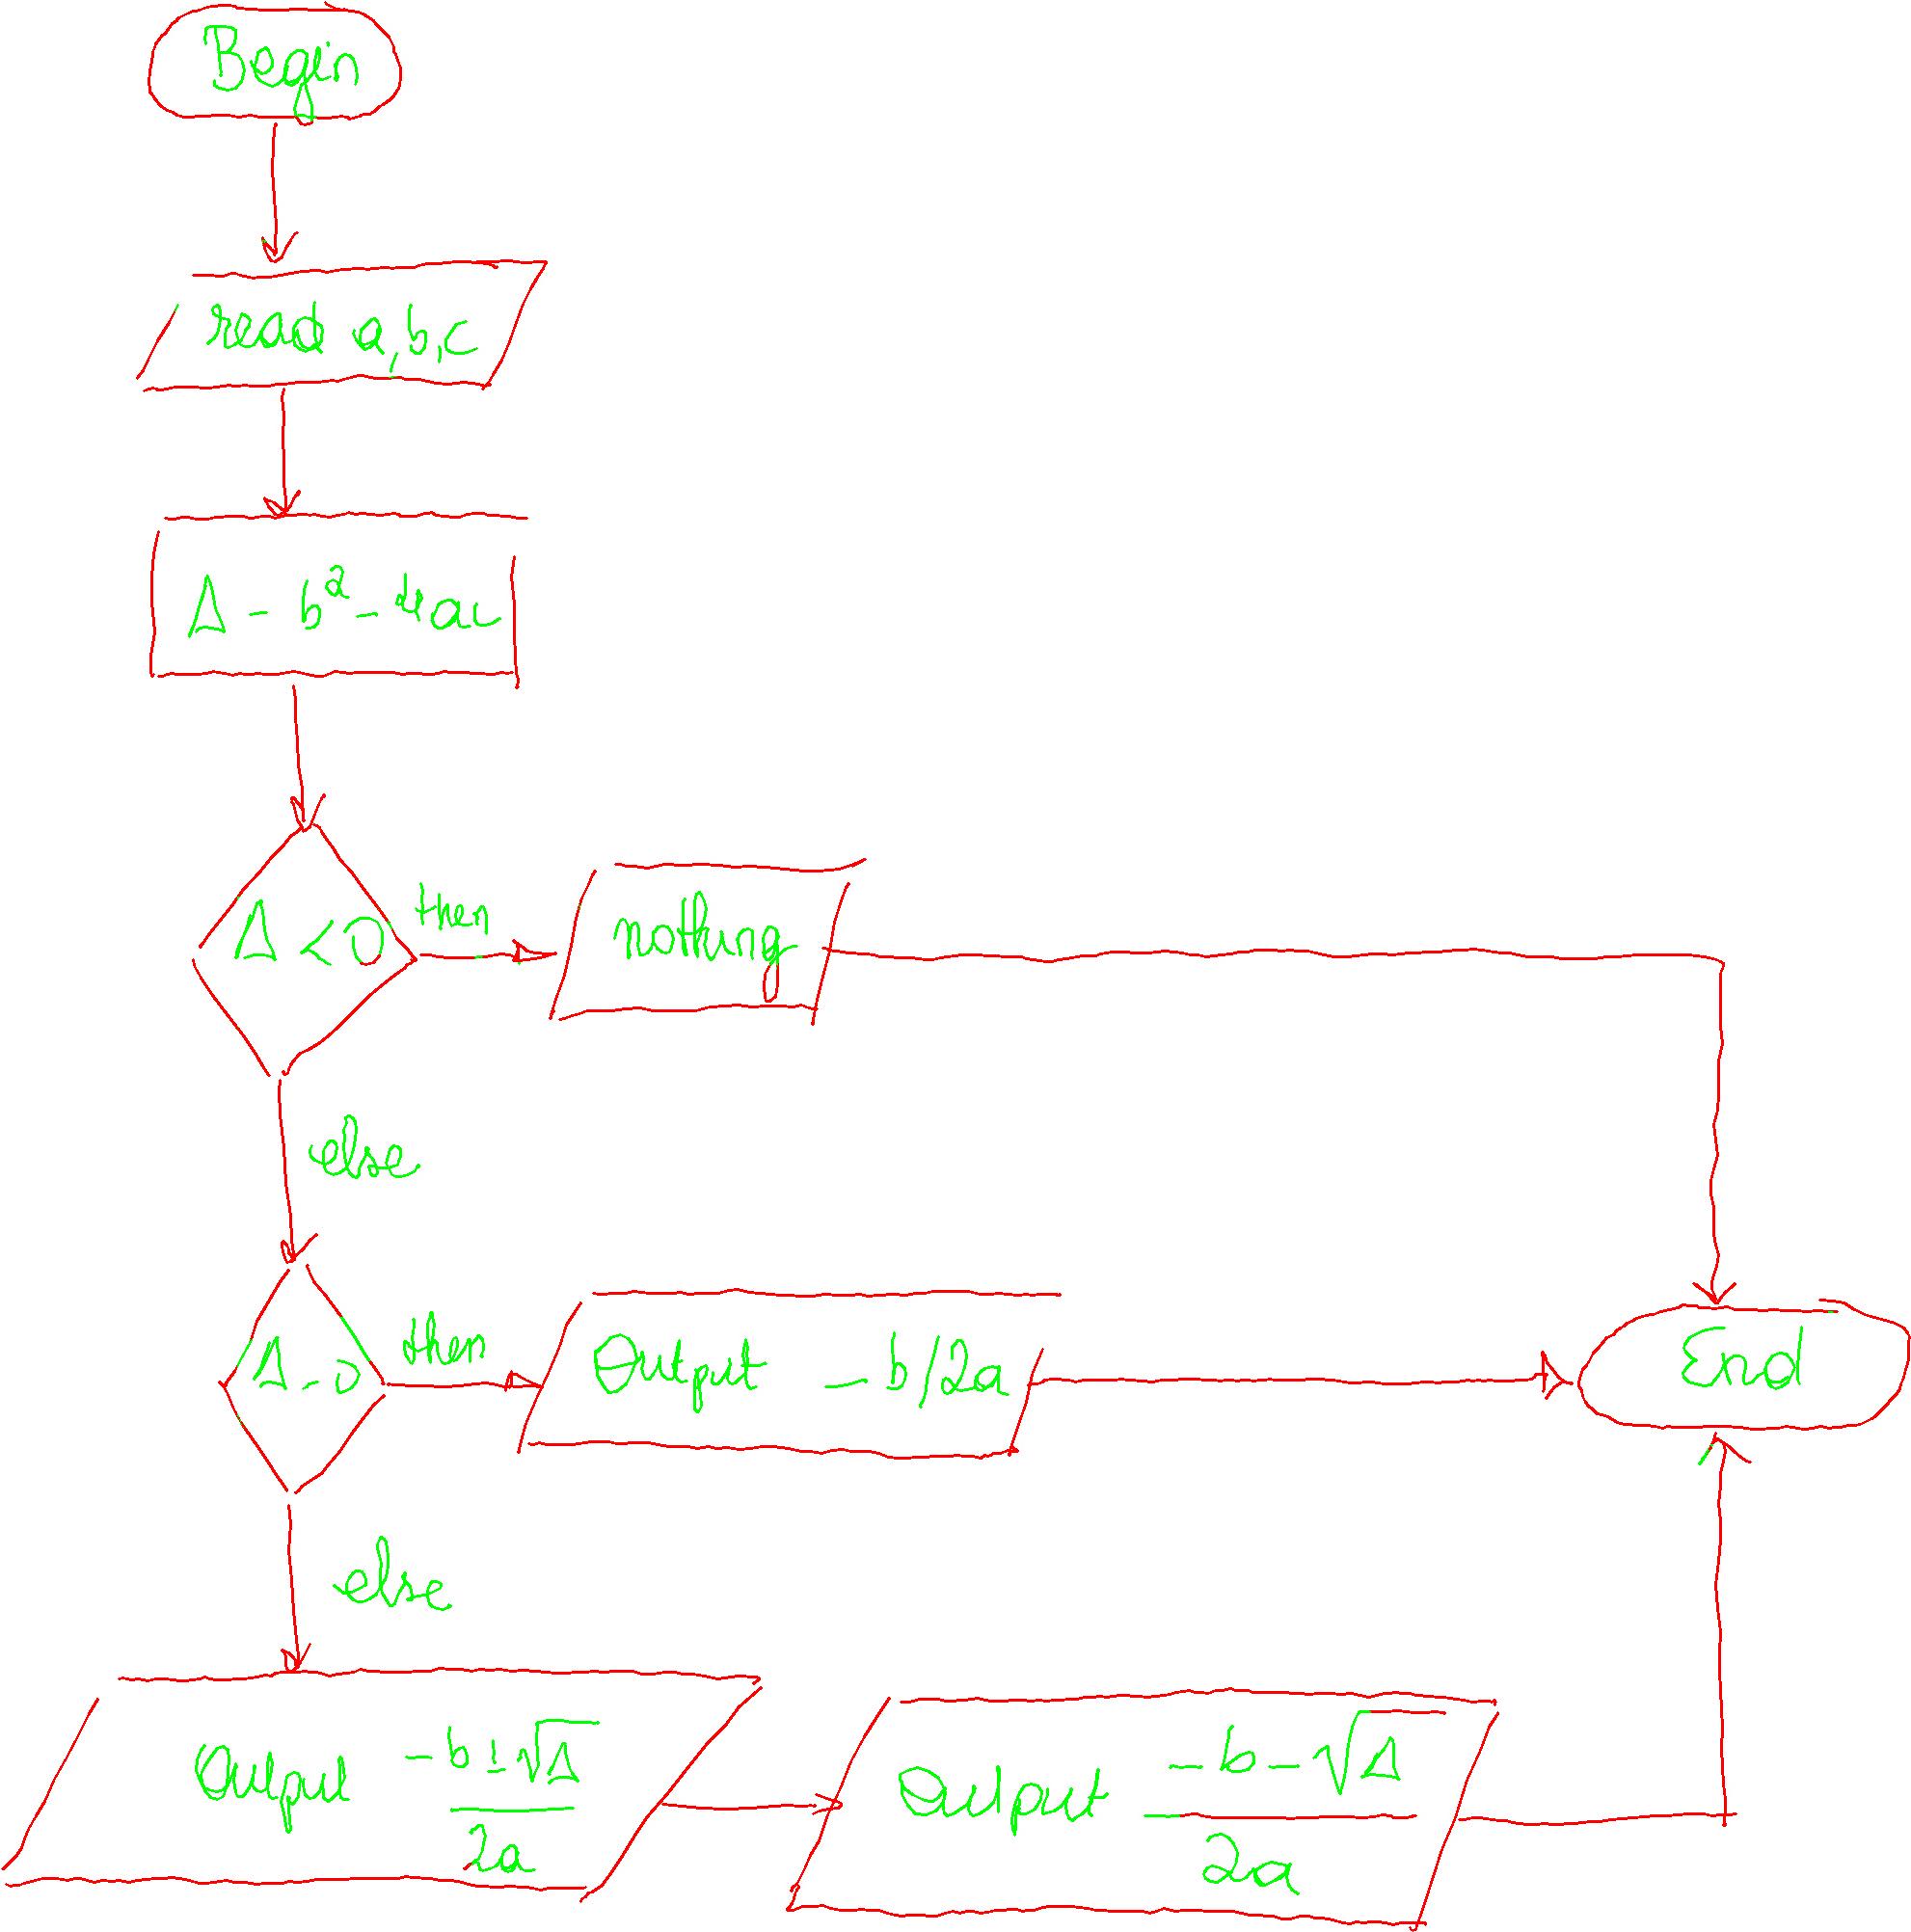 Begin
read a,b,c
Δ - b² - 4ac
Δ < 0
then
nothing
else
Δ - 0
then
Output - b/2a
End
else
Output -b±√Δ / 2a
Output -b-√Δ / 2a